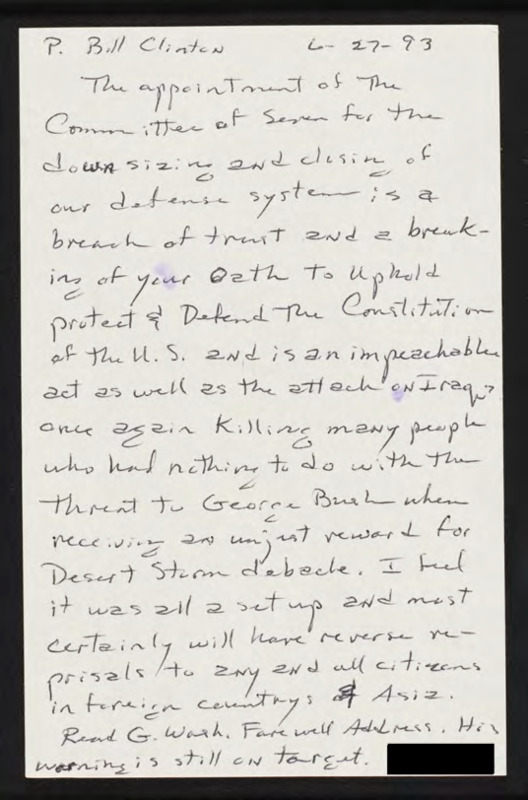 P. Bill Clinton 6-27-93
The appointment of The
Committee of Seven for the
down sizing and closing of
our defense system is a
breach of trust and a break-
ing of your Oath to Uphold
protect & Defend The Constitution
of the U.S. and is an impeachable
act as well as the attack on Iraq
once again Killing many people
who had nothing to do with the
Threat to George Bush when
receiving an unjust reward for
Desert Storm debacle. I feel
it was all a set up and most
certainly will have reverse re-
prisals to any and all citizens
in foreign countrys Asia.
Read G. Wash. Farewell Address. His
warning is still on target.